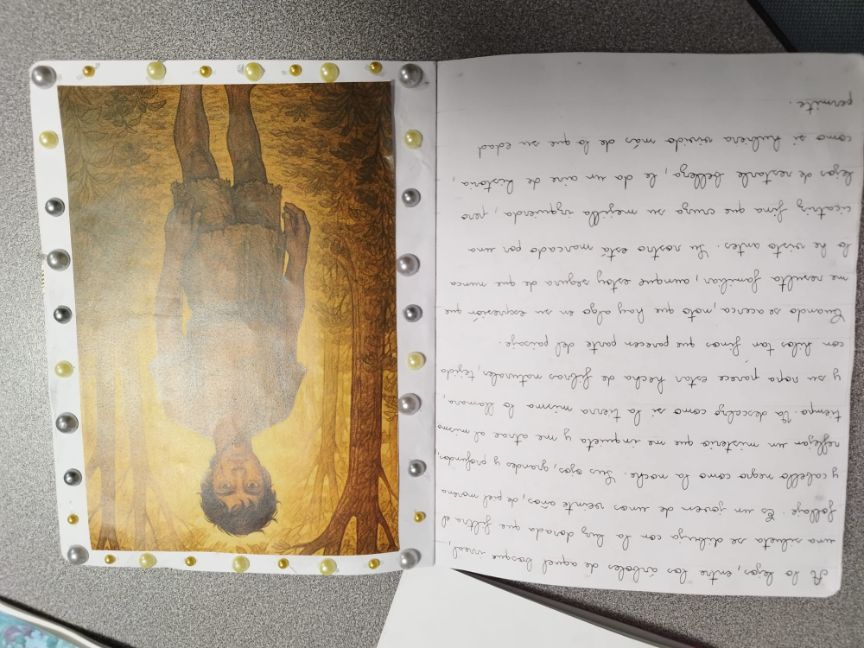 A lo lejos, entre los árboles de aquel bosque irreal,
una silueta se dibuja con la luz dorada que filtra el
follaje. Es un joven de unos veinte años, de piel morena
y cabello negro como la noche. Sus ojos, grandes y profundos,
reflejan un misterio que me inquieta y me atrae al mismo
tiempo. Va descalzo como si la tierra misma lo llamara,
y su ropa parece estar hecha de fibras naturales, tejida
con hilos tan finos que parecen parte del paisaje.
Cuando se acerca, noto que hay algo en su expresión que
me resulta familiar, aunque estoy segura de que nunca
lo he visto antes. Su rostro está marcado por una
cicatriz fina que cruza su mejilla izquierda, pero
lejos de restarle belleza, le da un aire de historia,
como si hubiera vivido más de lo que su edad
permite.